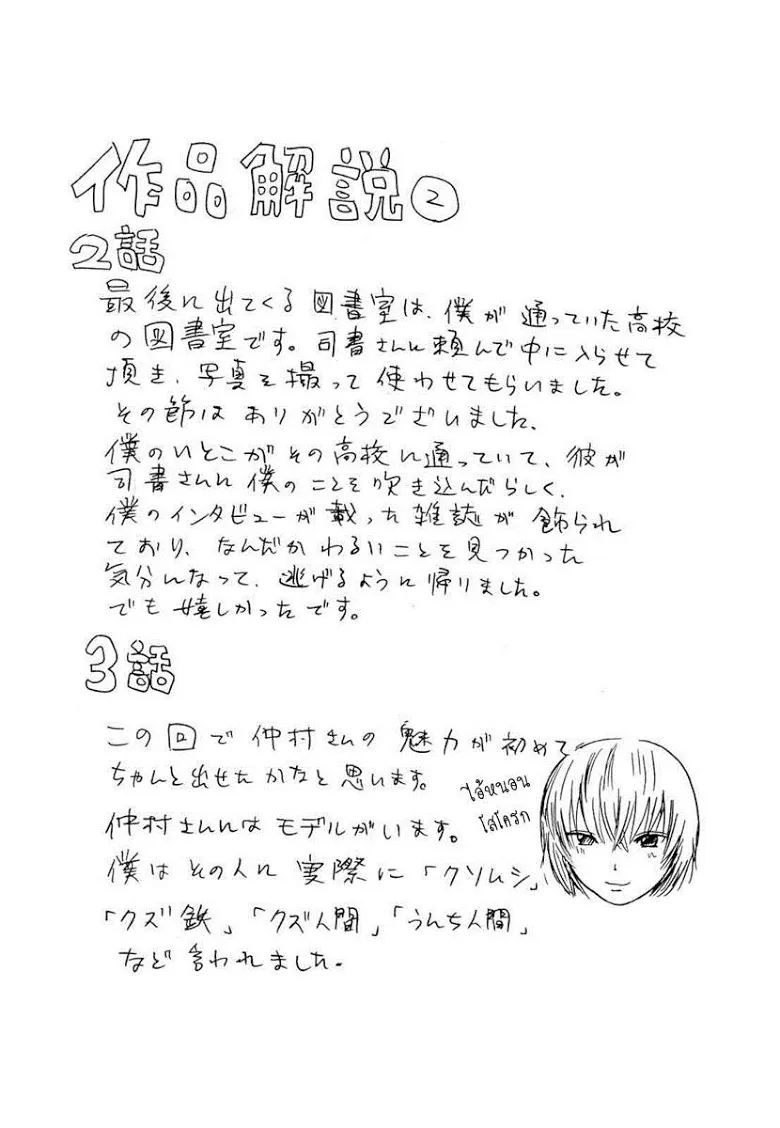 作品解説②
2話
最後に出てくる図書室は、僕が通っていた高校
の図書室です。司書さんに頼んで中に入らせて
頂き、写真を撮って使わせてもらいました。
その節はありがとうございました。
僕のいとこがその高校に通っていて、彼が
司書さんに僕のことを吹き込んだらしく、
僕のインタビューが載った雑誌が飾られ
ており、なんだかわるいことを見つかった
気分になって、逃げるように帰りました。
でも嬉しかったです。
3話
この回で仲村さんの魅力が初めて
ちゃんと出せたかなと思います。
仲村さんにはモデルがいます。
僕はその人に実際に「クソムシ」
「クズ鉄」「クズ人間」「うんち人間」
など言われました。
ไอ้หนอน
โสโครก